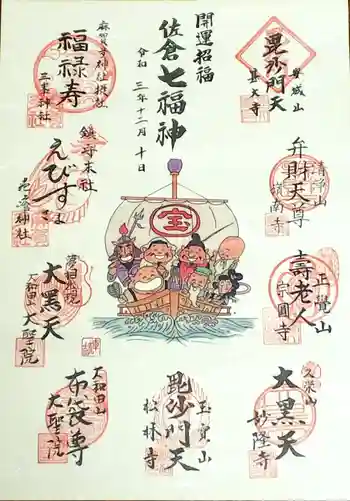 開運招福
佐倉七福神
令和三年十二月十日
毘沙門天
甚大寺
弁財天尊
清浄山
嶺南寺
壽老人
正覺山
宗圓寺
大黒天
久栄山
妙隆寺
毘沙門天
玉寳山
松林寺
布袋尊
大和田山
大聖院
大黒天
大和田山
大聖院
えびすさま
鎮守本社
神社
福禄寿
麻賀多神社摂社
三峯神社
宝